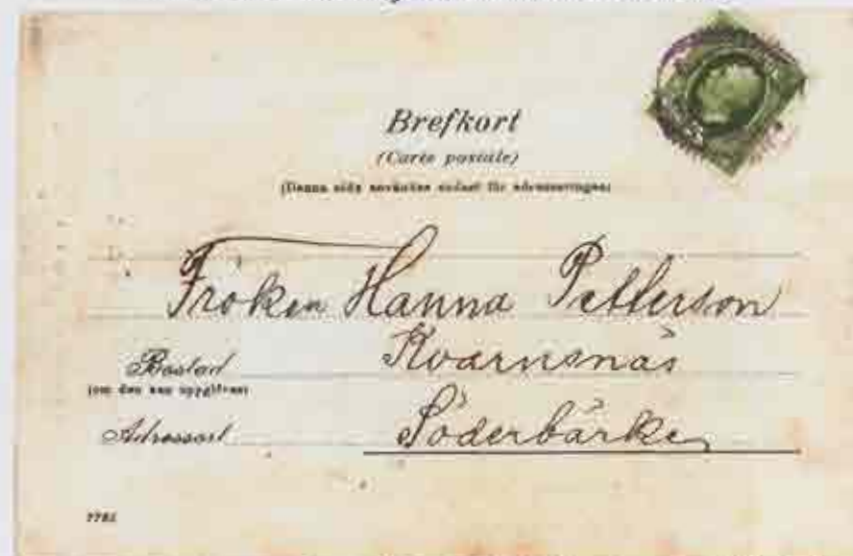 Brefkort
(Carte postale)
(Denna sida användes endast för adresseringen)
Fröken Hanna Petterson
Bostad Kvarnsnäs
(om den kan uppgifvas)
Adressort Söderbärke
7782